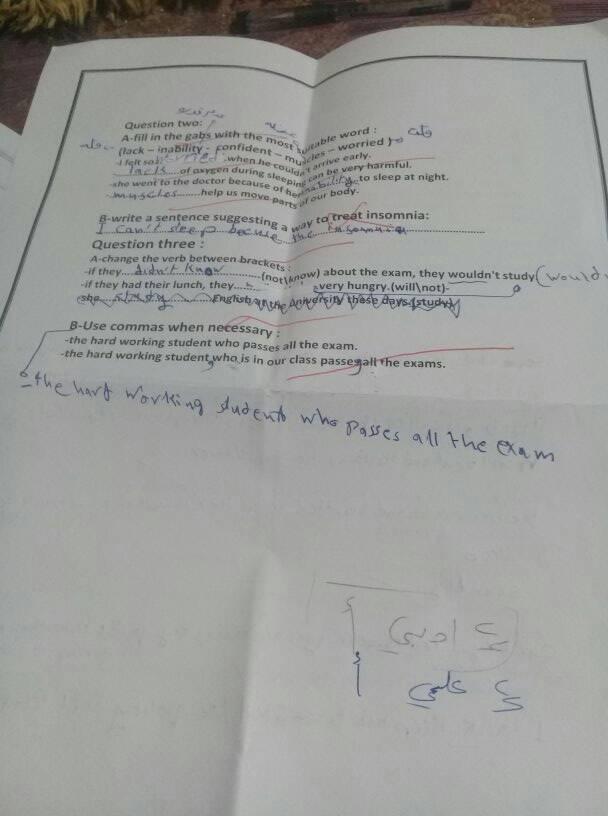 Question two:
A-fill in the gabs with the most suitable word :
(lack – inability - confident – muscles – worried )
-I felt so worried .when he couldn't arrive early.
lack ....of oxygen during sleeping can be very harmful.
-she went to the doctor because of her inability to sleep at night.
muscles ......help us move parts of our body.
B-write a sentence suggesting a way to treat insomnia:
I can't sleep becuse the insomnia
Question three :
A-change the verb between brackets :
-if they... didn't know ...(not\know) about the exam, they wouldn't study (would
-if they had their lunch, they... very hungry.(will\not)-
she study English at the university these days.(study)
B-Use commas when necessary :
-the hard working student who passes all the exam.
-the hard working student, who is in our class passes, all the exams.
-the hart working student who passes all the exam